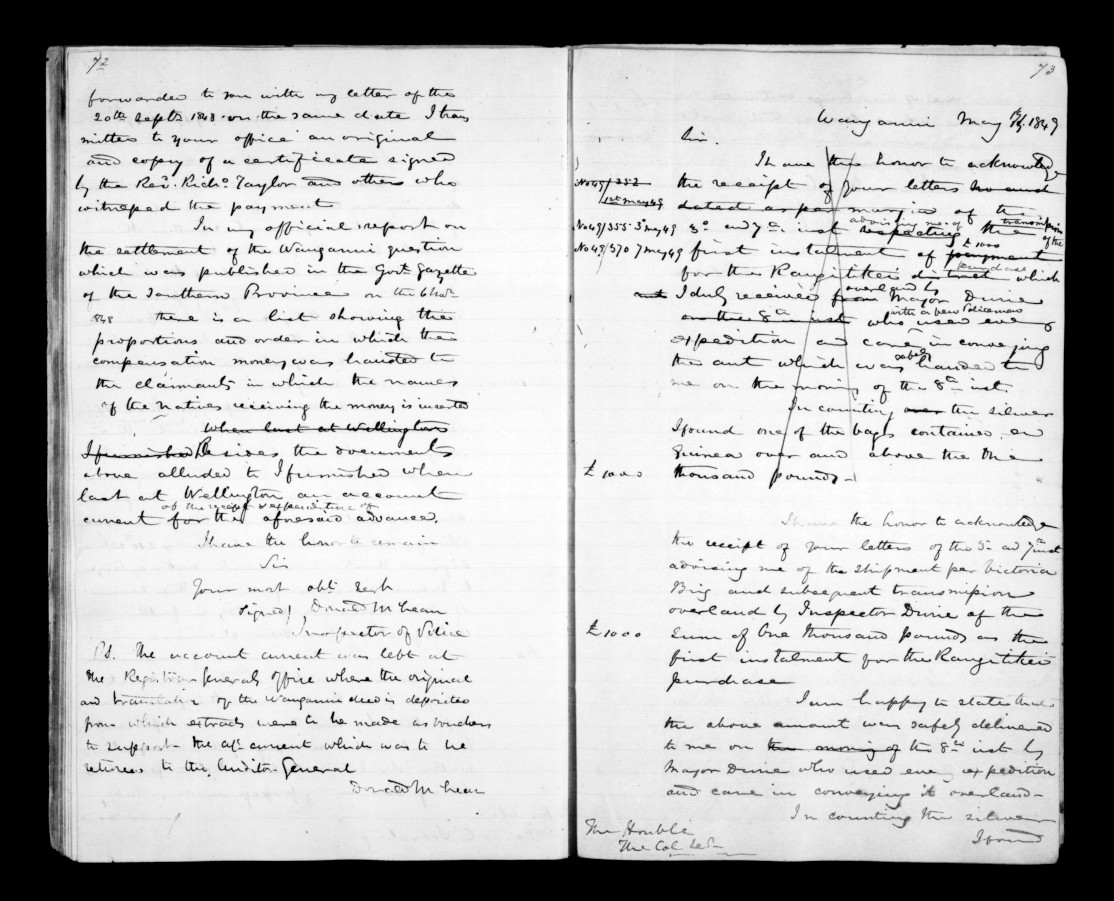 72
forwarded to you with my letter of the
20th Septr 1848 on the same date I trans
mitted to your office an original
and copy of a certificate signed
by the Revd. Richd Taylor and others who
witnessed the payment
In my official report on
the settlement of the Wanganui question
which was published in the Govt Gazette
of the Southern Province on the
848 there is a list showing the
proportions and order in which the
compensation money was handed to
the claimants in which the names
of the natives receiving the money is inserted
When last at Wellington
I furnished Besides the documents
above alluded to I furnished when
last at Wellington an account
of the receipt & expenditure of
current for the aforesaid advance.
I have the honor to remain
Sir
Your most obt Servt
signed/ Donald McLean
Inspector of Police
P.S. The account current was left at
the Registrar Generals office where the original
and translation of the Wanganui deed is deposited
from which extracts were to be made as vouchers
to support the a/c current which was to be
returned to the Auditor General
Donald McLean
73
Wanganui May 1849
Sir.
I have the honor to acknowledge
No 49/352 the receipt of your letters
1st May 49 dated as per margin of the
advising me of transmission
No 49/355 3d May 49 3d and 7th inst respecting the of the
No 49/370 7 May 49 first instalment of payment £1000
purchase
for the Rangitikei district which
overland by
and I duly received from Major Durie
with a few Policemen
on the 8th inst who used every
expedition and care in conveying
safely
the amt which was handed to
me on the morning of the 8th inst.
In counting over the silver
I found one of the bags contained one
Guinea over and above the One
£1000 thousand pounds -
I have the honor to acknowledge
the receipt of your letters of the 3d and 7th inst
advising me of the shipment per Victoria
Brig and subsequent transmission
overland by Inspector Durie of the
£1000 Sum of One thousand pounds as the
first instalment for the Rangitikei
purchase
I am happy to state that
the above amount was safely delivered
to me on the morning of the 8th inst by
Major Durie who used every expedition
and care in conveying it overland -
In counting the silver
I found
The Honble
The Col. Secy